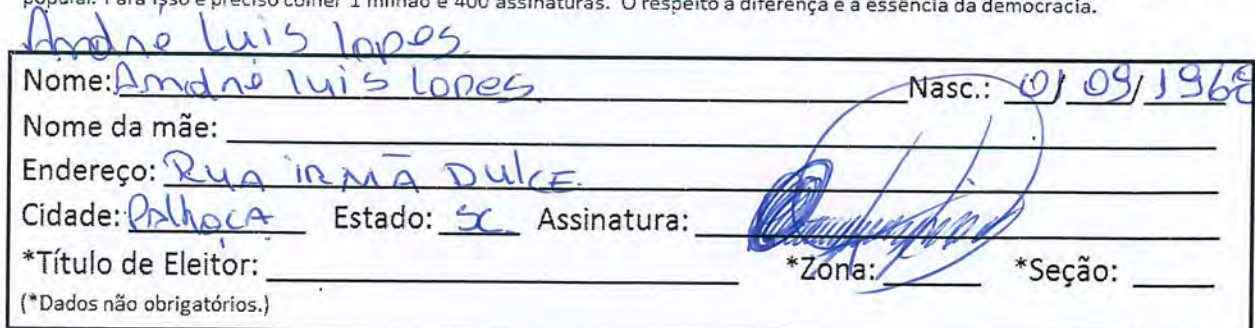 popular. Para isso é preciso colher 1 milhão e 400 assinaturas. O respeito à diferença é a essência da democracia.
André Luis lopes
Nome: André luis Lopes Nasc.: 01/09/1968
Nome da mãe:
Endereço: RUA IRMÃ DULCE.
Cidade: PAlhOCA Estado: SC Assinatura:
*Título de Eleitor: *Zona: *Seção:
(*Dados não obrigatórios.)